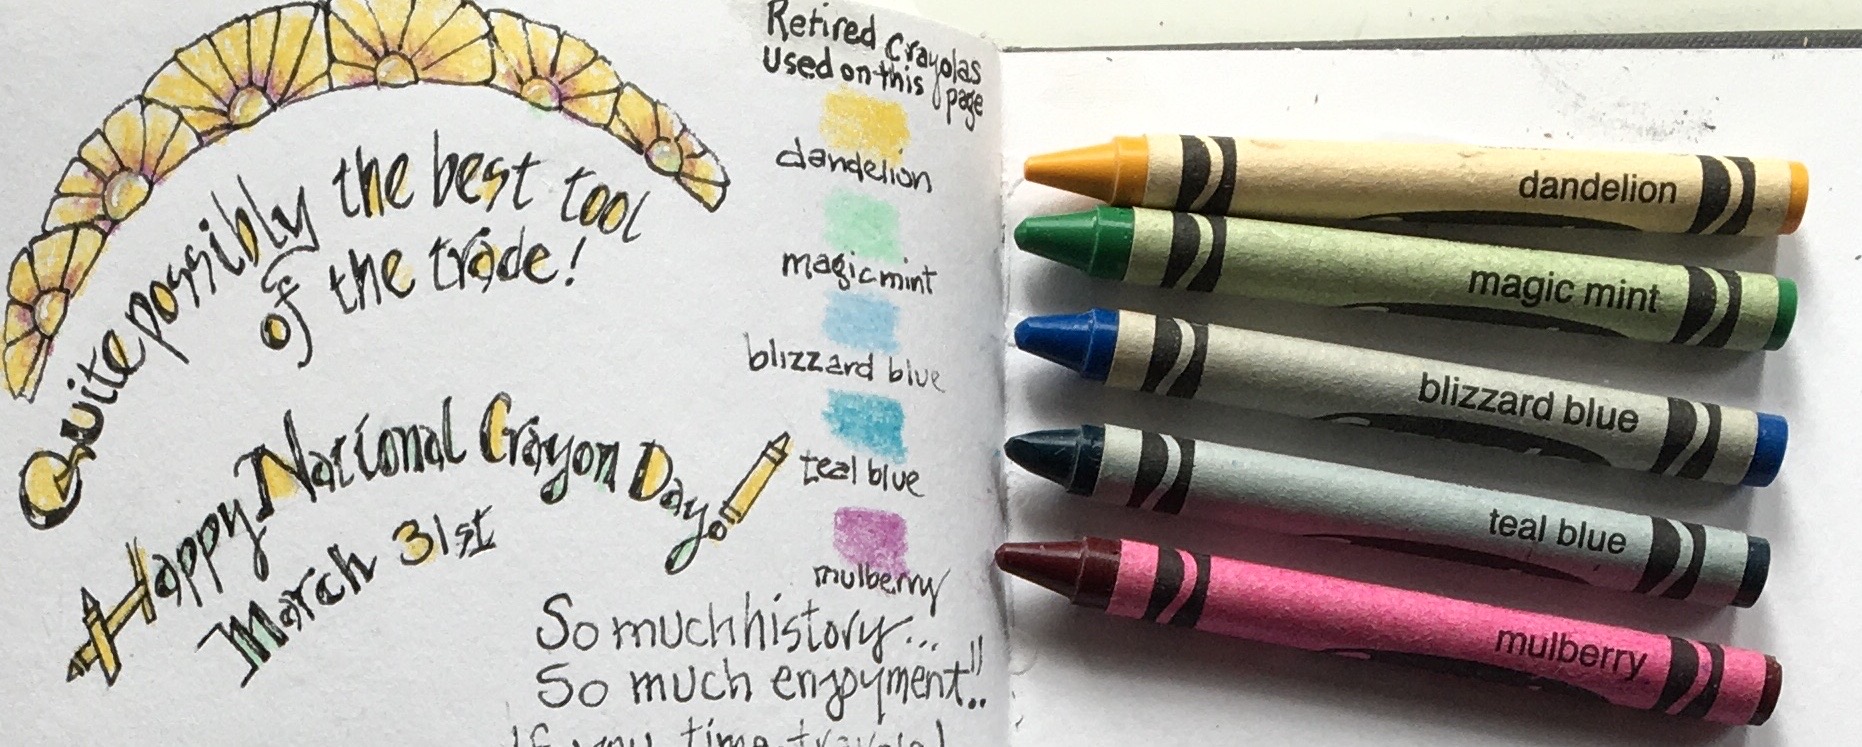 Quite possibly the best tool
of the trade!
Happy National Crayon Day!
March 31st
Retired Crayolas
used on this
page
dandelion
magic mint
blizzard blue
teal blue
mulberry
So much history...
So much enjoyment!!
If you time travele
dandelion
magic mint
blizzard blue
teal blue
mulberry